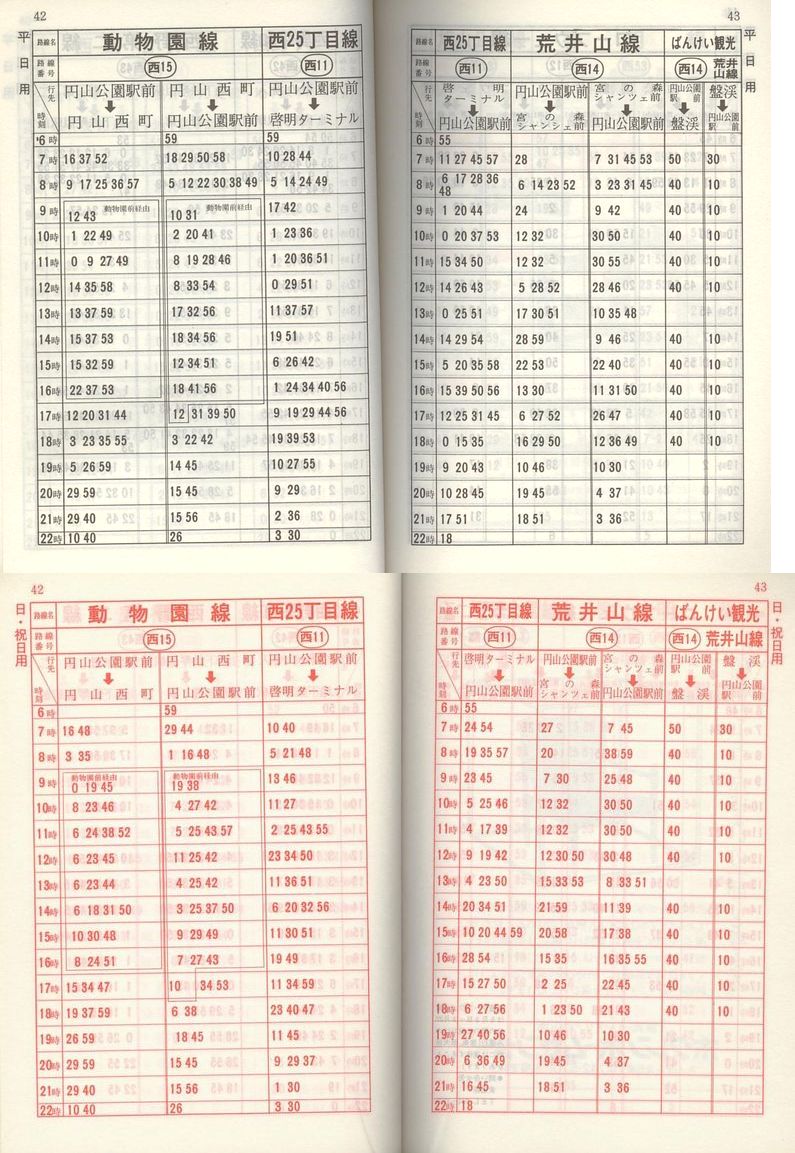 42
平日用
路線名 動物園線 西25丁目線
路線番号 西15 西11
行先 時刻 円山公園駅前 ➡ 円山西町 円山西町 ➡ 円山公園駅前 円山公園駅前 ➡ 啓明ターミナル
6時 59 59
7時 16 37 52 18 29 50 58 10 28 44
8時 9 17 25 36 57 5 12 22 30 38 49 5 14 24 49
動物園前経由 動物園前経由
9時 12 43 10 31 17 42
10時 1 22 49 2 20 41 1 23 36
11時 0 9 27 49 8 19 28 46 1 20 36 51
12時 14 35 58 8 33 54 0 29 51
13時 13 37 59 17 32 56 11 37 57
14時 15 37 53 18 34 56 19 51
15時 15 32 59 12 34 51 6 26 42
16時 22 37 53 18 41 56 1 24 34 40 56
17時 12 20 31 44 12 31 39 50 9 19 29 44 56
18時 3 23 35 55 3 22 42 19 39 53
19時 5 26 59 14 45 10 27 55
20時 29 59 15 45 9 29
21時 29 40 15 56 2 36
22時 10 40 26 3 30
43
平日用
路線名 西25丁目線 荒井山線 ばんけい観光
路線番号 西11 西14 西14 荒井山線
行先 時刻 啓明ターミナル ➡ 円山公園駅前 円山公園駅前 ➡ 宮の森シャンツェ前 宮の森シャンツェ前 ➡ 円山公園駅前 円山公園駅前 ➡ 盤渓 盤渓 ➡ 円山公園駅前
6時 55
7時 11 27 45 57 28 7 31 45 53 50 30
8時 6 17 28 36 48 6 14 23 52 3 23 31 45 40 10
9時 1 20 44 24 9 42 40 10
10時 0 20 37 53 12 32 30 50 40 10
11時 15 34 50 12 32 30 55 40 10
12時 14 26 43 5 28 52 28 46 40 10
13時 0 25 51 17 30 51 10 35 48
14時 14 29 54 28 59 9 46 40 10
15時 5 20 35 58 22 53 22 40 40 10
16時 15 39 50 56 13 30 11 31 50 40 10
17時 12 25 31 45 6 27 52 26 47 40 10
18時 0 15 35 16 29 50 12 36 49 40 10
19時 9 20 43 10 46 10 30
20時 10 28 45 19 45 4 37
21時 17 51 18 51 3 36
22時 18
42
日・祝日用
路線名 動物園線 西25丁目線
路線番号 西15 西11
行先 時刻 円山公園駅前 ➡ 円山西町 円山西町 ➡ 円山公園駅前 円山公園駅前 ➡ 啓明ターミナル
6時 59
7時 16 48 29 44 10 40
8時 3 35 1 16 48 5 21 48
動物園前経由 動物園前経由
9時 0 19 45 19 38 13 46
10時 8 23 46 4 27 42 11 27
11時 6 24 38 52 5 25 43 57 2 25 43 55
12時 6 23 45 11 25 42 23 34 50
13時 6 23 44 4 25 42 11 36 51
14時 6 18 31 50 3 25 37 50 6 20 32 56
15時 10 30 48 9 29 49 11 30 51
16時 8 24 51 7 27 43 19 49
17時 15 34 47 10 34 53 11 34 59
18時 19 37 59 6 38 23 40 47
19時 26 59 18 45 11 45
20時 29 59 15 45 9 29 37
21時 29 40 15 56 1 30
22時 10 40 26 3 30
43
日・祝日用
路線名 西25丁目線 荒井山線 ばんけい観光
路線番号 西11 西14 西14 荒井山線
行先 時刻 啓明ターミナル ➡ 円山公園駅前 円山公園駅前 ➡ 宮の森シャンツェ前 宮の森シャンツェ前 ➡ 円山公園駅前 円山公園駅前 ➡ 盤渓 盤渓 ➡ 円山公園駅前
6時 55
7時 24 54 27 7 45 50 30
8時 19 35 57 20 38 59 40 10
9時 23 45 7 30 25 48 40 10
10時 5 25 46 12 32 30 50 40 10
11時 4 17 39 12 32 30 50 40 10
12時 9 19 42 12 30 50 30 48 40 10
13時 4 23 50 15 33 53 8 33 51
14時 20 34 51 21 59 11 39 40 10
15時 10 20 44 59 20 58 17 38 40 10
16時 28 54 15 35 16 35 55 40 10
17時 15 27 50 2 25 22 45 40 10
18時 6 27 56 1 23 50 21 43 40 10
19時 27 40 56 10 46 10 30
20時 6 36 49 19 45 4 37
21時 16 45 18 51 3 36
22時 18